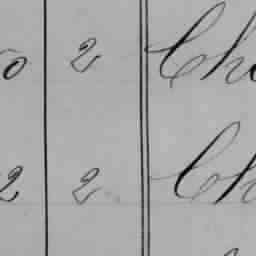 0 2 Ch
2 2 Ch